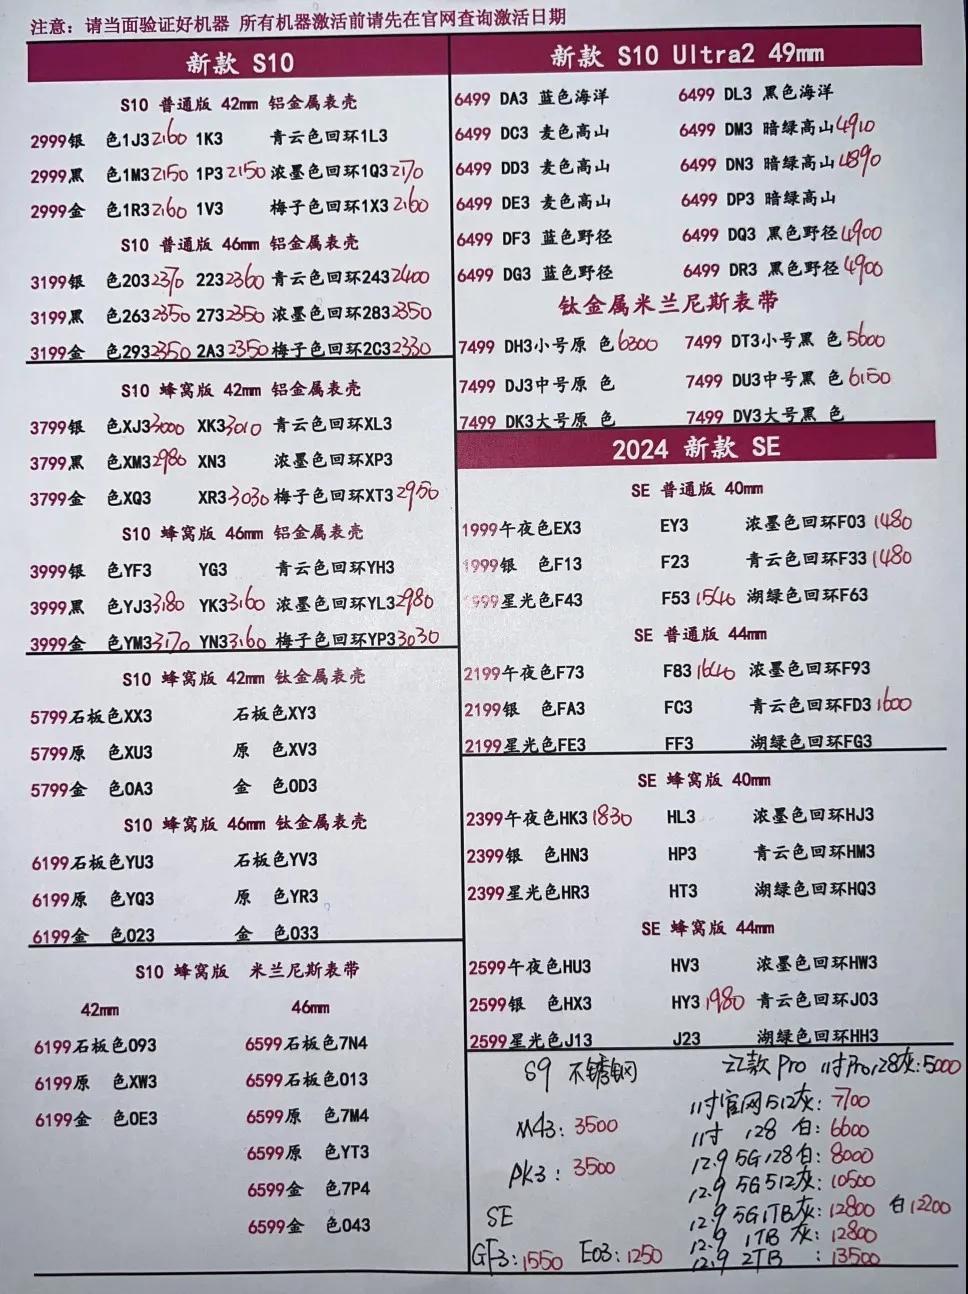 注意：请当面验证好机器 所有机器激活前请先在官网查询激活日期
新款 S10
S10 普通版 42mm 铝金属表壳
2999银 色1J3 2160 1K3 青云色回环1L3
2999黑 色1M3 2150 1P3 2150 浓墨色回环1Q3 2170
2999金 色1R3 2160 1V3 梅子色回环1X3 2160
S10 普通版 46mm 铝金属表壳
3199银 色203 2370 223 2360 青云色回环243 2400
3199黑 色263 2350 273 2350 浓墨色回环283 2350
3199金 色293 2350 2A3 2350 梅子色回环2C3 2330
S10 蜂窝版 42mm 铝金属表壳
3799银 色XJ3 3000 XK3 3010 青云色回环XL3
3799黑 色XM3 2980 XN3 浓墨色回环XP3
3799金 色XQ3 XR3 3030 梅子色回环XT3 2950
S10 蜂窝版 46mm 铝金属表壳
3999银 色YF3 YG3 青云色回环YH3
3999黑 色YJ3 3180 YK3 3160 浓墨色回环YL3 2980
3999金 色YM3 3170 YN3 3160 梅子色回环YP3 3030
S10 蜂窝版 42mm 钛金属表壳
5799石板色XX3 石板色XY3
5799原 色XU3 原 色XV3
5799金 色0A3 金 色0D3
S10 蜂窝版 46mm 钛金属表壳
6199石板色YU3 石板色YV3
6199原 色YQ3 原 色YR3
6199金 色023 金 色033
S10 蜂窝版 米兰尼斯表带
42mm 46mm
6199石板色093 6599石板色7N4
6199原 色XW3 6599石板色013
6199金 色0E3 6599原 色7M4
6599原 色YT3
6599金 色7P4
6599金 色043
新款 S10 Ultra2 49mm
6499 DA3 蓝色海洋 6499 DL3 黑色海洋
6499 DC3 麦色高山 6499 DM3 暗绿高山 4910
6499 DD3 麦色高山 6499 DN3 暗绿高山 4890
6499 DE3 麦色高山 6499 DP3 暗绿高山
6499 DF3 蓝色野径 6499 DQ3 黑色野径 4900
6499 DG3 蓝色野径 6499 DR3 黑色野径 4900
钛金属米兰尼斯表带
7499 DH3小号原 色 6300 7499 DT3小号黑 色 5600
7499 DJ3中号原 色 7499 DU3中号黑 色 6150
7499 DK3大号原 色 7499 DV3大号黑 色
2024 新款 SE
SE 普通版 40mm
1999午夜色EX3 EY3 浓墨色回环F03 1480
1999银 色F13 F23 青云色回环F33 1480
1999星光色F43 F53 1540 湖绿色回环F63
SE 普通版 44mm
2199午夜色F73 F83 1640 浓墨色回环F93
2199银 色FA3 FC3 青云色回环FD3 1600
2199星光色FE3 FF3 湖绿色回环FG3
SE 蜂窝版 40mm
2399午夜色HK3 1830 HL3 浓墨色回环HJ3
2399银 色HN3 HP3 青云色回环HM3
2399星光色HR3 HT3 湖绿色回环HQ3
SE 蜂窝版 44mm
2599午夜色HU3 HV3 浓墨色回环HW3
2599银 色HX3 HY3 1980 青云色回环J03
2599星光色J13 J23 湖绿色回环HH3
S9 不锈钢
M43: 3500
PK3: 3500
SE
GF3: 1550 E03: 1250
22款 Pro 11寸Pro128灰: 5000
11寸官网512灰: 7700
11寸 128 白: 6600
12.9 5G 128白: 8000
12.9 5G 512灰: 10500
12.9 5G 1TB灰: 12800 白 12200
12.9 1TB 灰: 12800
12.9 2TB : 13500